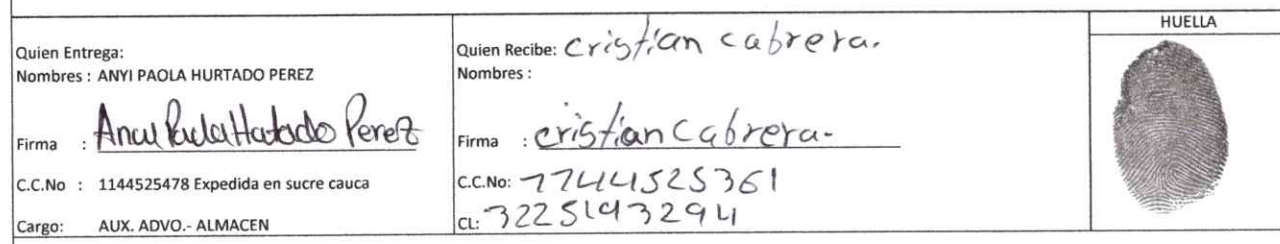 HUELLA
Quien Entrega:
Nombres : ANYI PAOLA HURTADO PEREZ
Firma : Anyi Paola Hurtado Perez
C.C.No : 1144525478 Expedida en sucre cauca
Cargo: AUX. ADVO.- ALMACEN
Quien Recibe: cristian cabrera.
Nombres :
Firma : cristian cabrera.
C.C.No: 7744525361
CL: 3225193294